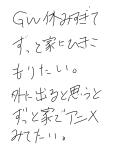 GW休みすぎて
ずっと家にひきこ
もりたい。
外に出ると思うと
ずっと家でアニメ
みてたい。